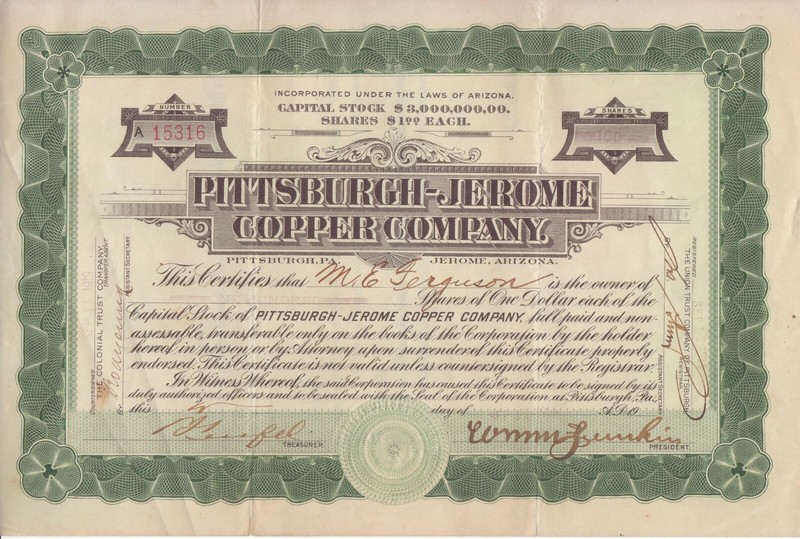 INCORPORATED UNDER THE LAWS OF ARIZONA.
CAPITAL STOCK $3,000,000,00.
SHARES $1.00 EACH.
NUMBER
A 15316
SHARES
*100*
PITTSBURGH-JEROME
COPPER COMPANY.
PITTSBURGH, PA. JEROME, ARIZONA.
This Certifies that M. E. Ferguson is the owner of
Shares of One Dollar each of the
Capital Stock of PITTSBURGH-JEROME COPPER COMPANY, full paid and non-
assessable, transferable only on the books of the Corporation by the holder
hereof in person or by Attorney upon surrender of this Certificate properly
endorsed. This Certificate is not valid unless countersigned by the Registrar.
In Witness Whereof, the said Corporation has caused this Certificate to be signed by its
duly authorized officers and to be sealed with the Seal of the Corporation at Pittsburgh, Pa.,
this day of A.D. 19
TREASURER.
PRESIDENT.
COUNTERSIGNED
THE COLONIAL TRUST COMPANY,
TRANSFER AGENT
BY
ASSISTANT SECRETARY
REGISTERED
THE UNION TRUST COMPANY OF PITTSBURGH
REGISTRAR
ASSISTANT SECRETARY